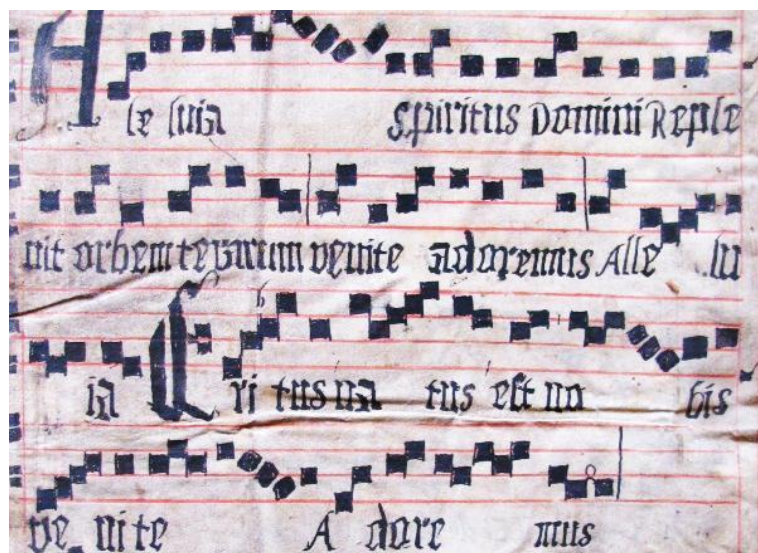 A le luia Spiritus Domini Reple
uit orbem terarum venite adoremus Alle lu
ia Cri tus na tus est no bis
ve nite A dore mus